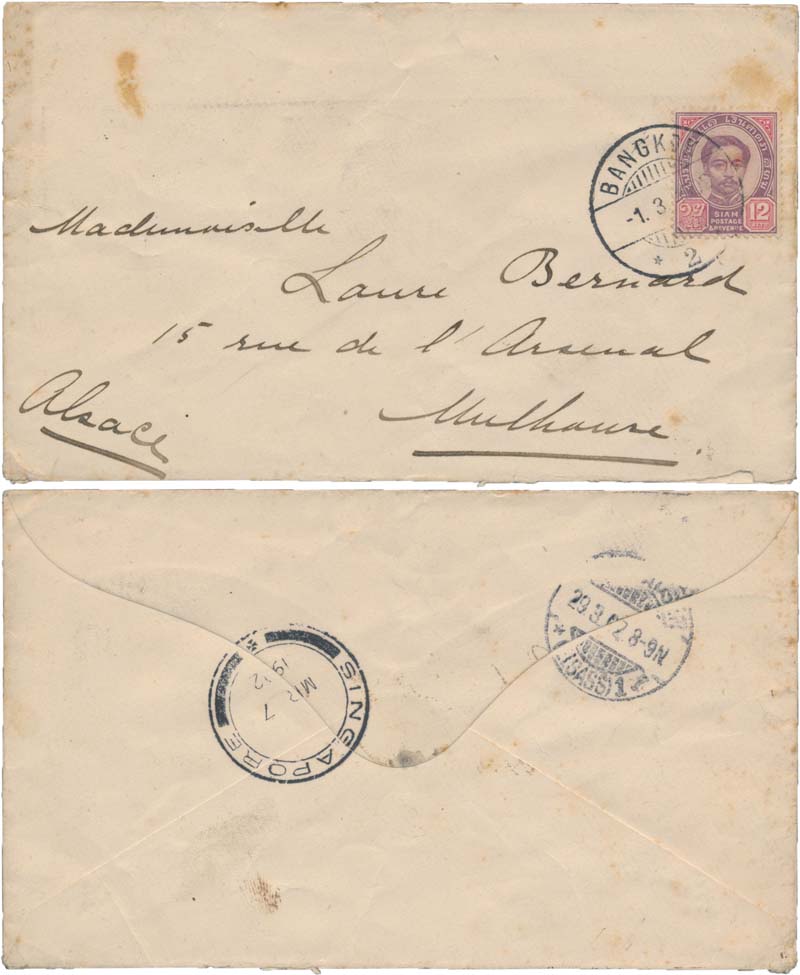 BANGK
-1. 3
* 2
SIAM
POSTAGE
& REVENUE
12
Mademoiselle
Laure Bernard
15 rue de l'Arsenal
Mulhouse.
Alsace
SINGAPORE
MR 7
1902
29.3.02.8-9N
*(ELSASS) 1